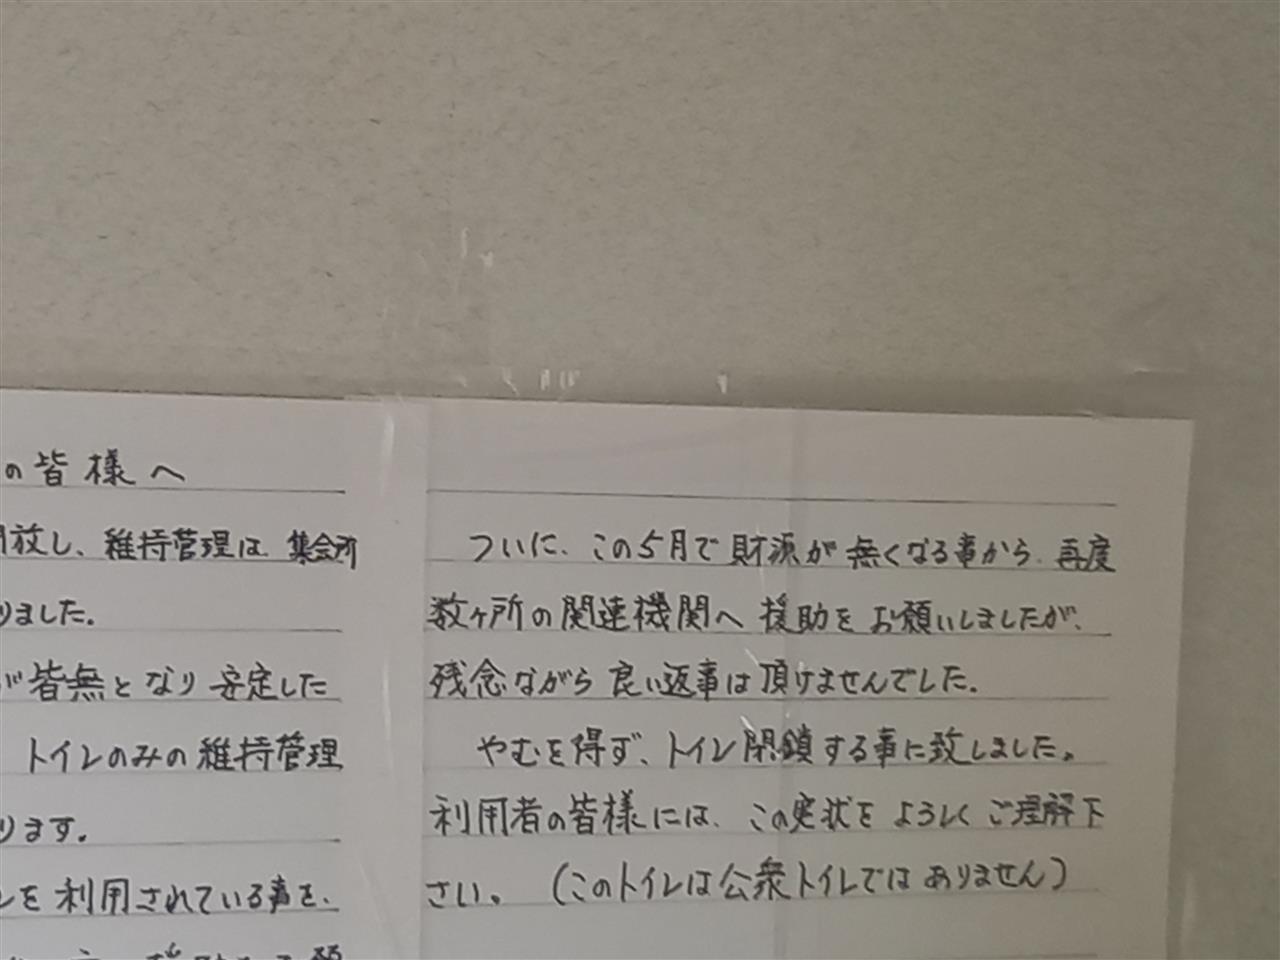 の皆様へ
開放し、維持管理は、集会所
りました。
が皆無となり安定した
トイレのみの維持管理
ります。
レを利用されている事を、
ついに、この5月で財源が無くなる事から、再度
数ヶ所の関連機関へ援助をお願いしましたが、
残念ながら良い返事は頂けませんでした。
やむを得ず、トイレ閉鎖する事に致しました。
利用者の皆様には、この実状をよろしくご理解下
さい。(このトイレは公衆トイレではありません)